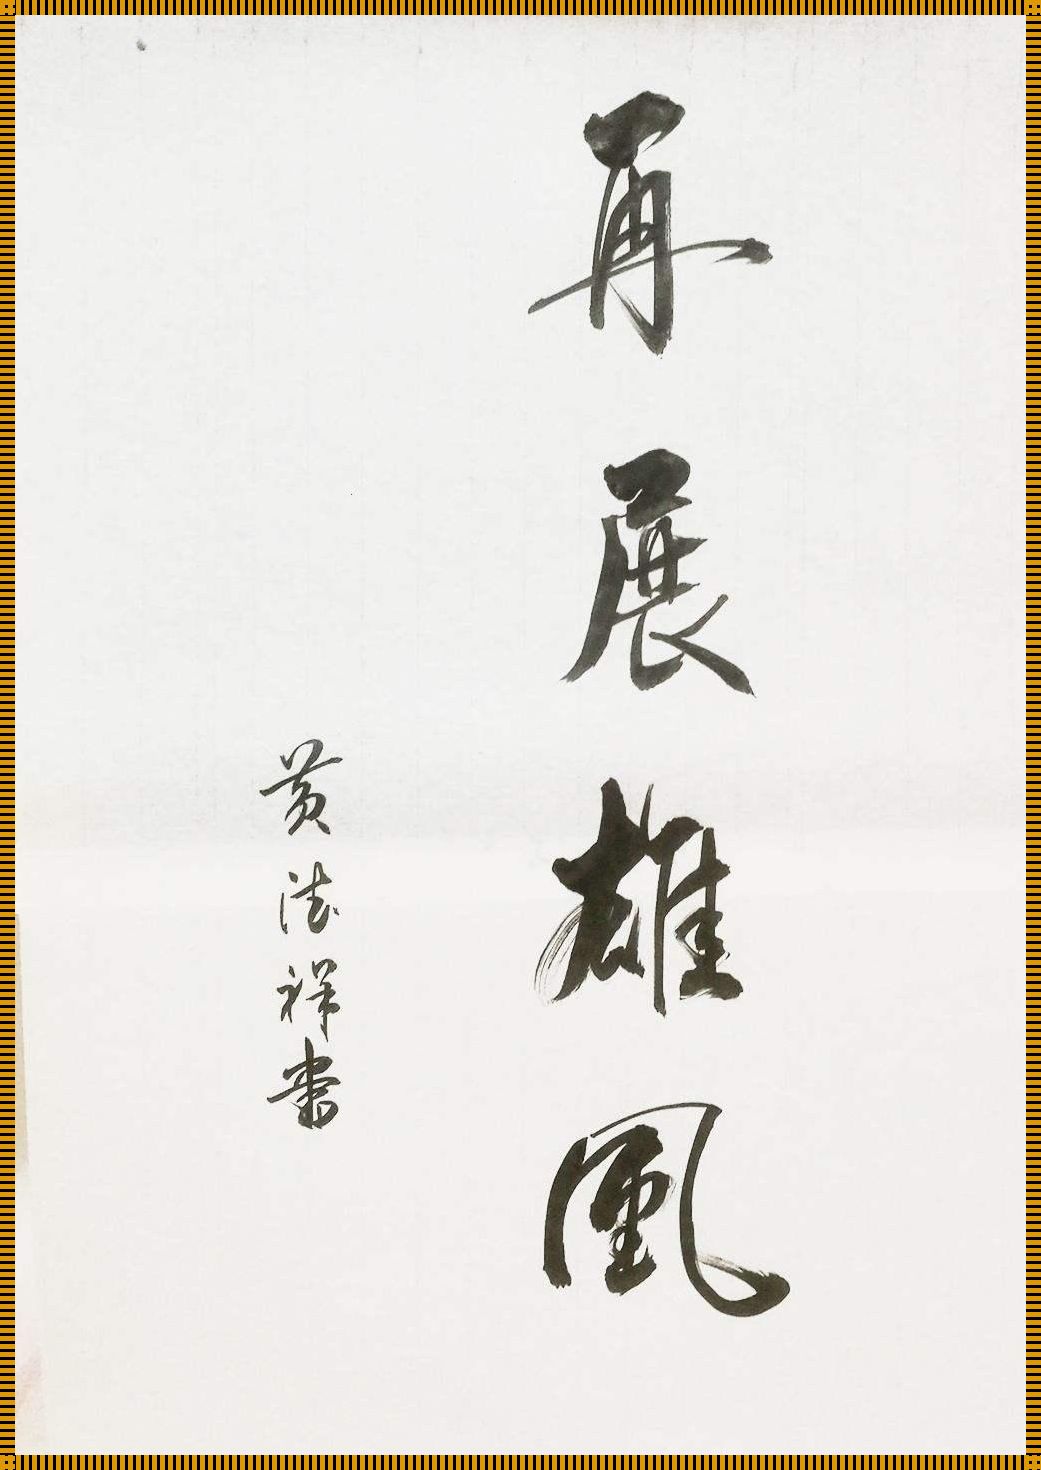 再展雄風
黃法祥書